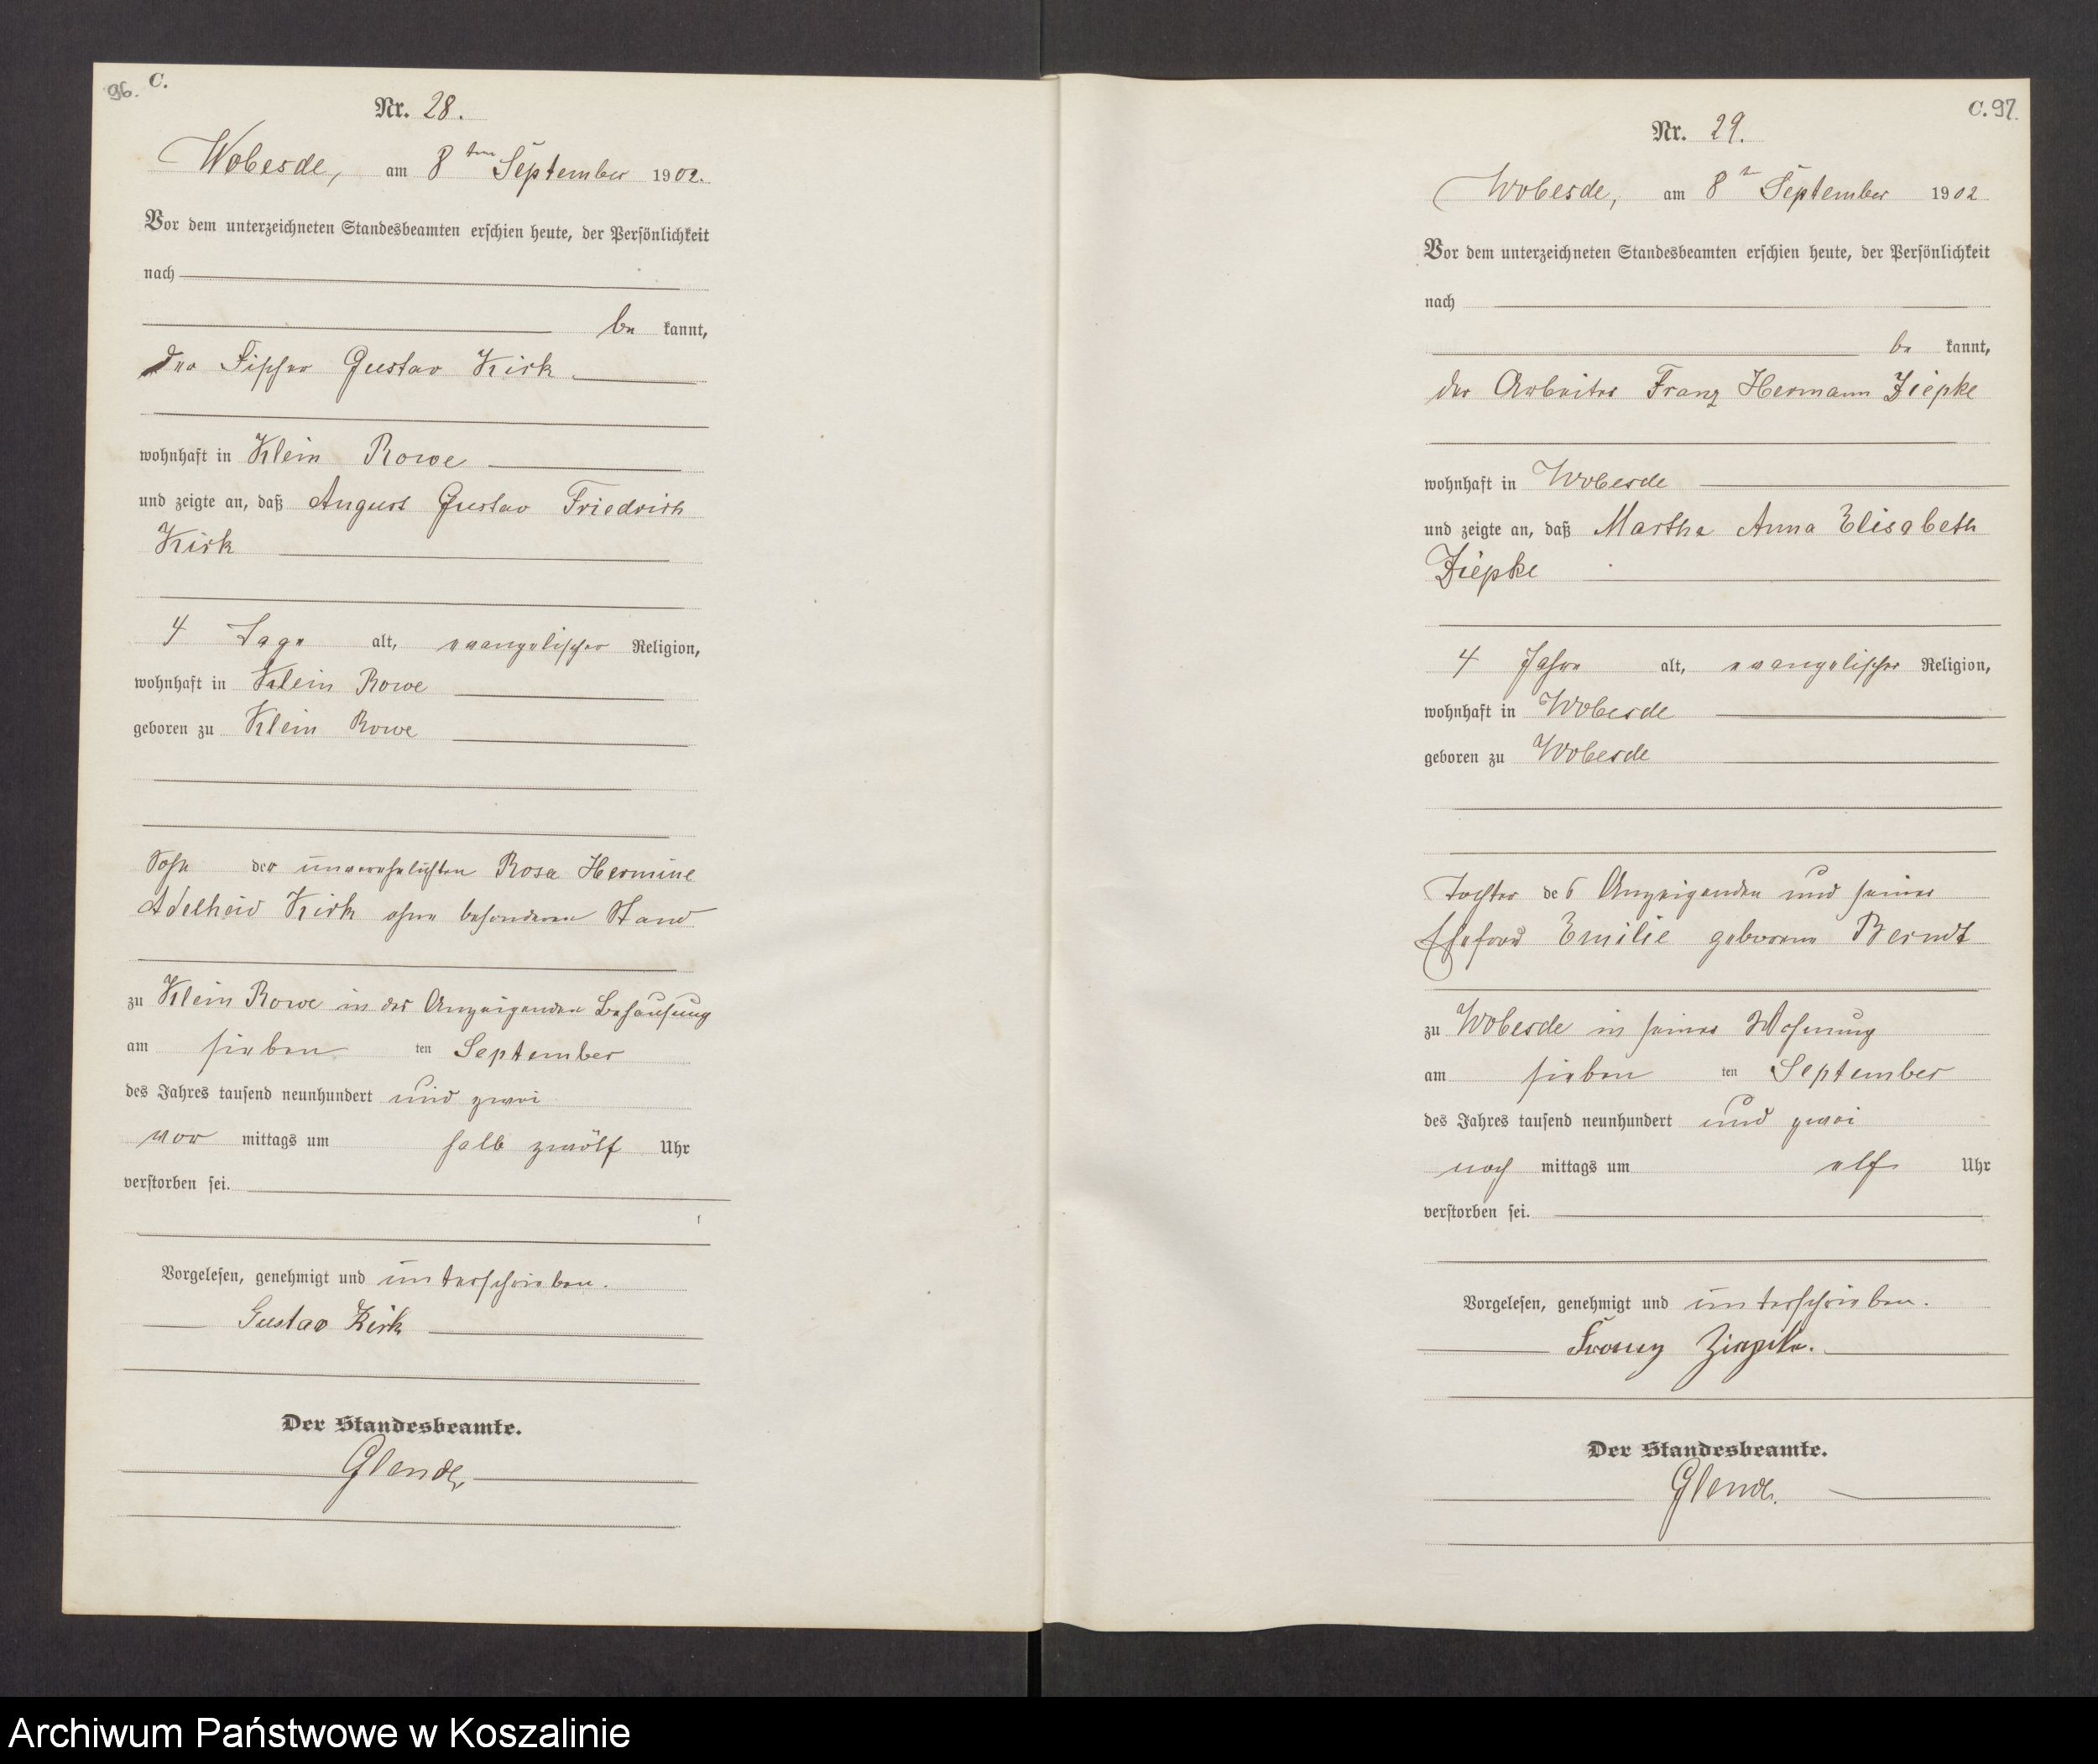 96. C.
Nr. 28.
Wobesde, am 8ten September 1902.
Vor dem unterzeichneten Standesbeamten erschien heute, der Persönlichkeit
nach
be kannt,
der Fischer Gustav Kirk
wohnhaft in Klein Rowe
und zeigte an, daß August Gustav Friedrich
Kirk
4 Tage alt, evangelischer Religion,
wohnhaft in Klein Rowe
geboren zu Klein Rowe
Sohn der unverehelichten Rosa Hermine
Adelheid Kirk ohne besonderen Stand
zu Klein Rowe in des Anzeigenden Behausung
am sieben ten September
des Jahres tausend neunhundert und zwei
vor mittags um halb zwölf Uhr
verstorben sei.
Vorgelesen, genehmigt und unterschrieben.
Gustav Kirk
Der Standesbeamte.
Glende
C. 97.
Nr. 29.
Wobesde, am 8t September 1902
Vor dem unterzeichneten Standesbeamten erschien heute, der Persönlichkeit
nach
be kannt,
der Arbeiter Franz Hermann Ziepke
wohnhaft in Wobesde
und zeigte an, daß Martha Anna Elisabeth
Ziepke
4 Jahre alt, evangelischer Religion,
wohnhaft in Wobesde
geboren zu Wobesde
Tochter des Anzeigenden und seiner
Ehefrau Emilie geborene Berndt
zu Wobesde in seiner Wohnung
am sieben ten September
des Jahres tausend neunhundert und zwei
nach mittags um elf Uhr
verstorben sei.
Vorgelesen, genehmigt und unterschrieben.
Franz Ziepke.
Der Standesbeamte.
Glende.
Archiwum Państwowe w Koszalinie